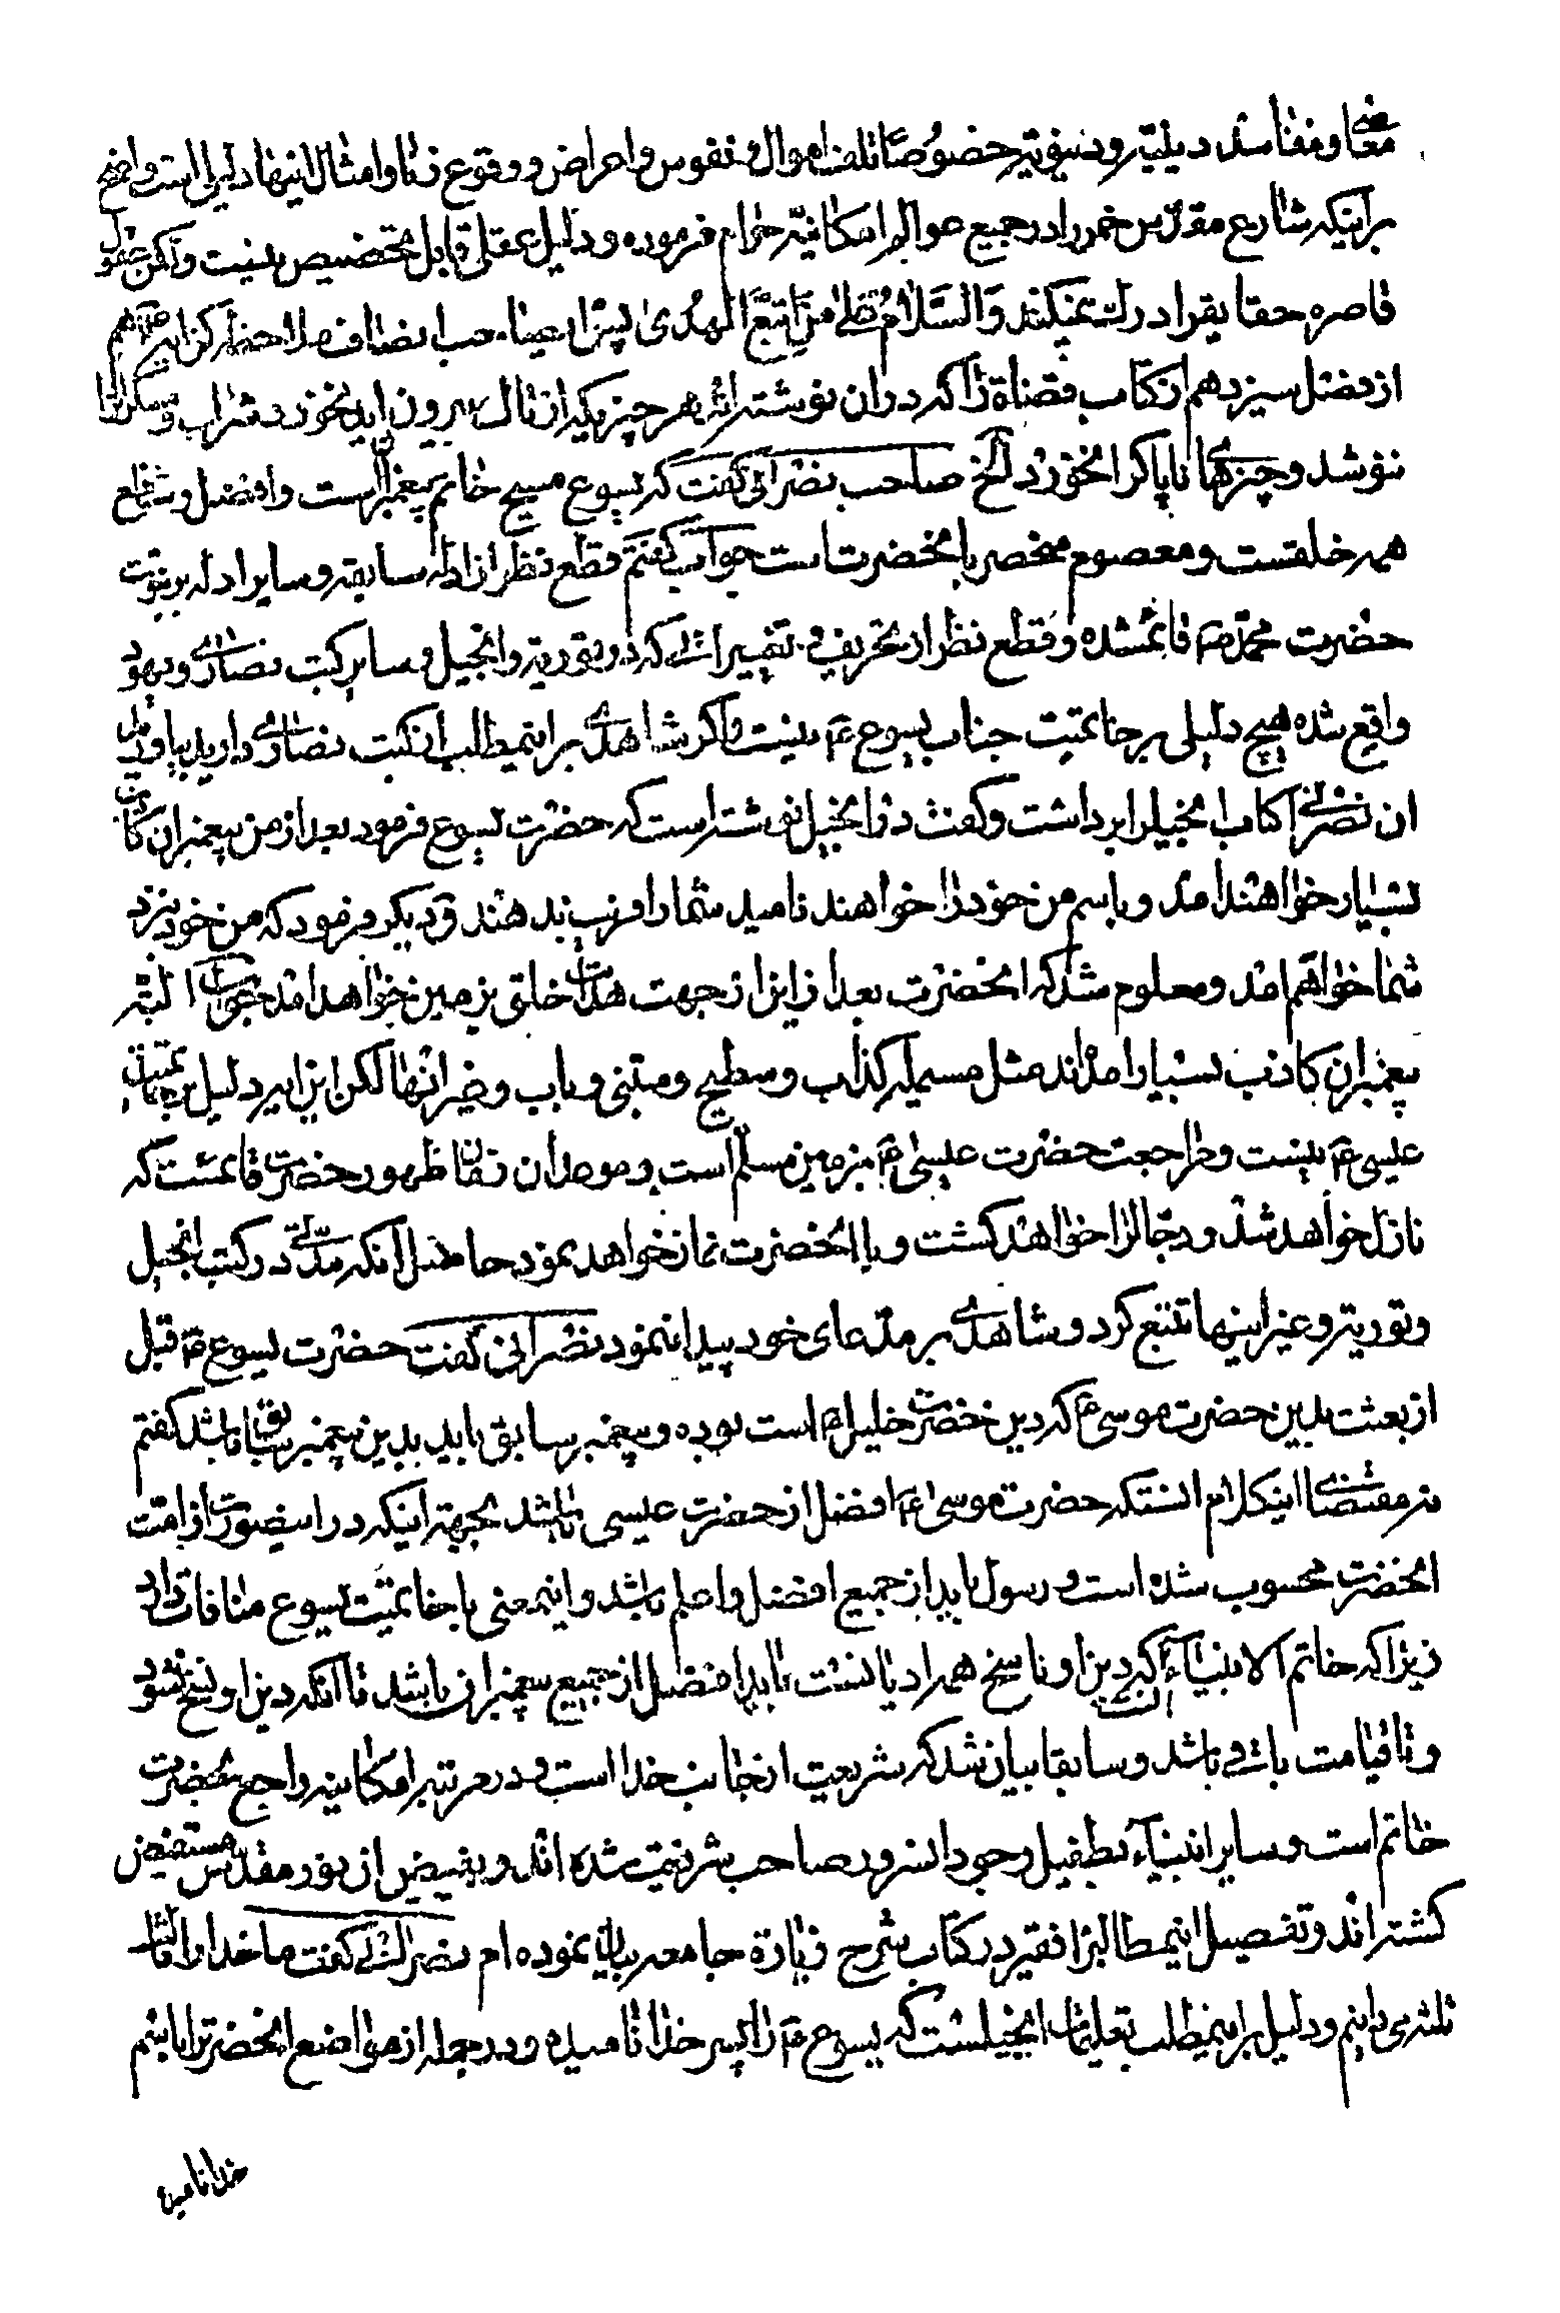 معاصی و مفاسد دینیّه و دنیویّه خصوصًا تلف اموال و نفوس و اعراض و وقوع زنا و امثال اینها دلیلی است واضح
بر اینکه شارع مقدّس خمر را در جمیع عوالم امکانیّه حرام فرموده و دلیل عقلی قابل تخصیص نیست ولکن عقول
قاصره حقایق را درک نمیکنند وَالسَّلامُ عَلیٰ مَنِ اتَّبَعَ الْهُدیٰ پس ای صاحب انصاف ملاحظه کن آیه چهاردهم
از فصل سیزدهم از کتاب قضاة را که در آن نوشته انه هر چیزیکه از تاک بیرون آید نخورد و شراب و مسکر را
ننوشد و چیزهای ناپاک را نخورد الخ صاحب نصرانی گفت که یسوع مسیح خاتم پیغمبرانست و افضل و شفاع
همه خلقست و معصوم منحصر بانحضرتست جواب گفتم قطع نظر از ادله سابقه و سایر ادله بر نبوّت
حضرت محمّد ص قائمشده و قطع نظر از تحریف و تغییراتی که در توریة و انجیل و سایر کتب نصاری و یهود
واقع شده هیچ دلیلی بر خاتمیّت جناب یسوع ع نیست و اکر شاهدی بر اینمطلب از کتب نصاری دارید بیاورید
ان نصرانی کتاب انجیل را برداشت و گفت در انجیل نوشته است که حضرت یسوع فرمود بعد از من پیغمبران کاذب
بسیار خواهند آمد و باسم من خود را خواهند نامید شما را فریب ندهند و دیکر فرمود که من خود نزد
شما خواهم امد و معلوم شد که انحضرت بعد از این از جهت هدایت خلق بزمین خواهد امد جواب البتّه
پیغمبران کاذب بسیار امده‌اند مثل مسیلمه کذاب و سطیح و متنبی و باب و غیر انها لکن این ایه دلیل بر خاتمیّت
عیسی ع نیست و مراجعت حضرت عیسی ع بزمین مسلّم است و موعد ان زمان ظهور حضرت قائمست که
نازل خواهد شد و دجّال را خواهد کشت و با انحضرت نماز خواهد نمود حاصل انکه مدّتی در کتب انجیل
و توریة و غیر اینها تتبع کرد و شاهدی بر مدّعای خود پیدا ننمود نصرانی گفت حضرت یسوع ع قبل
از بعثت بدین حضرت موسی ع که دین حضرت خلیل ع است بوده و پیغمبر سابق باید بدین پیغمبر سابق باشد کفتم
مقتضای اینکلام انستکه حضرت موسی ع افضل از حضرت عیسی باشد بجهة اینکه در اینصورت از امّت
انحضرت محسوب شده است و رسول باید از جمیع افضل و اعلم باشد و اینمعنی با خاتمیّت یسوع منافات دارد
زیرا که خاتم الانبیاء که دین او ناسخ همه ادیانست باید افضل از جمیع پیغمبران باشد تا انکه دین او نسخ نشود
و تا قیامت باقی باشد و سابقا بیان شد که شریعت از جانب خدا است و در مرتبه امکانیه راجع بحضرت
خاتم است و سایر انبیآء بطفیل وجود انسرور صاحب شریعت شده اند و بفیض از نور مقدّس مستفیض
کشته اند و تفصیل اینمطالب را فقیر در کتاب شرح زیارة جامعه بیان نموده ام نصرانی گفت ما خدا را ثالث
ثلثه می دانیم و دلیل بر اینمطلب تعلیمات انجیلست که یسوع ع را پسر خدا نامیده و در جمله از مواضع انحضرت را باسم
خدا نامیده